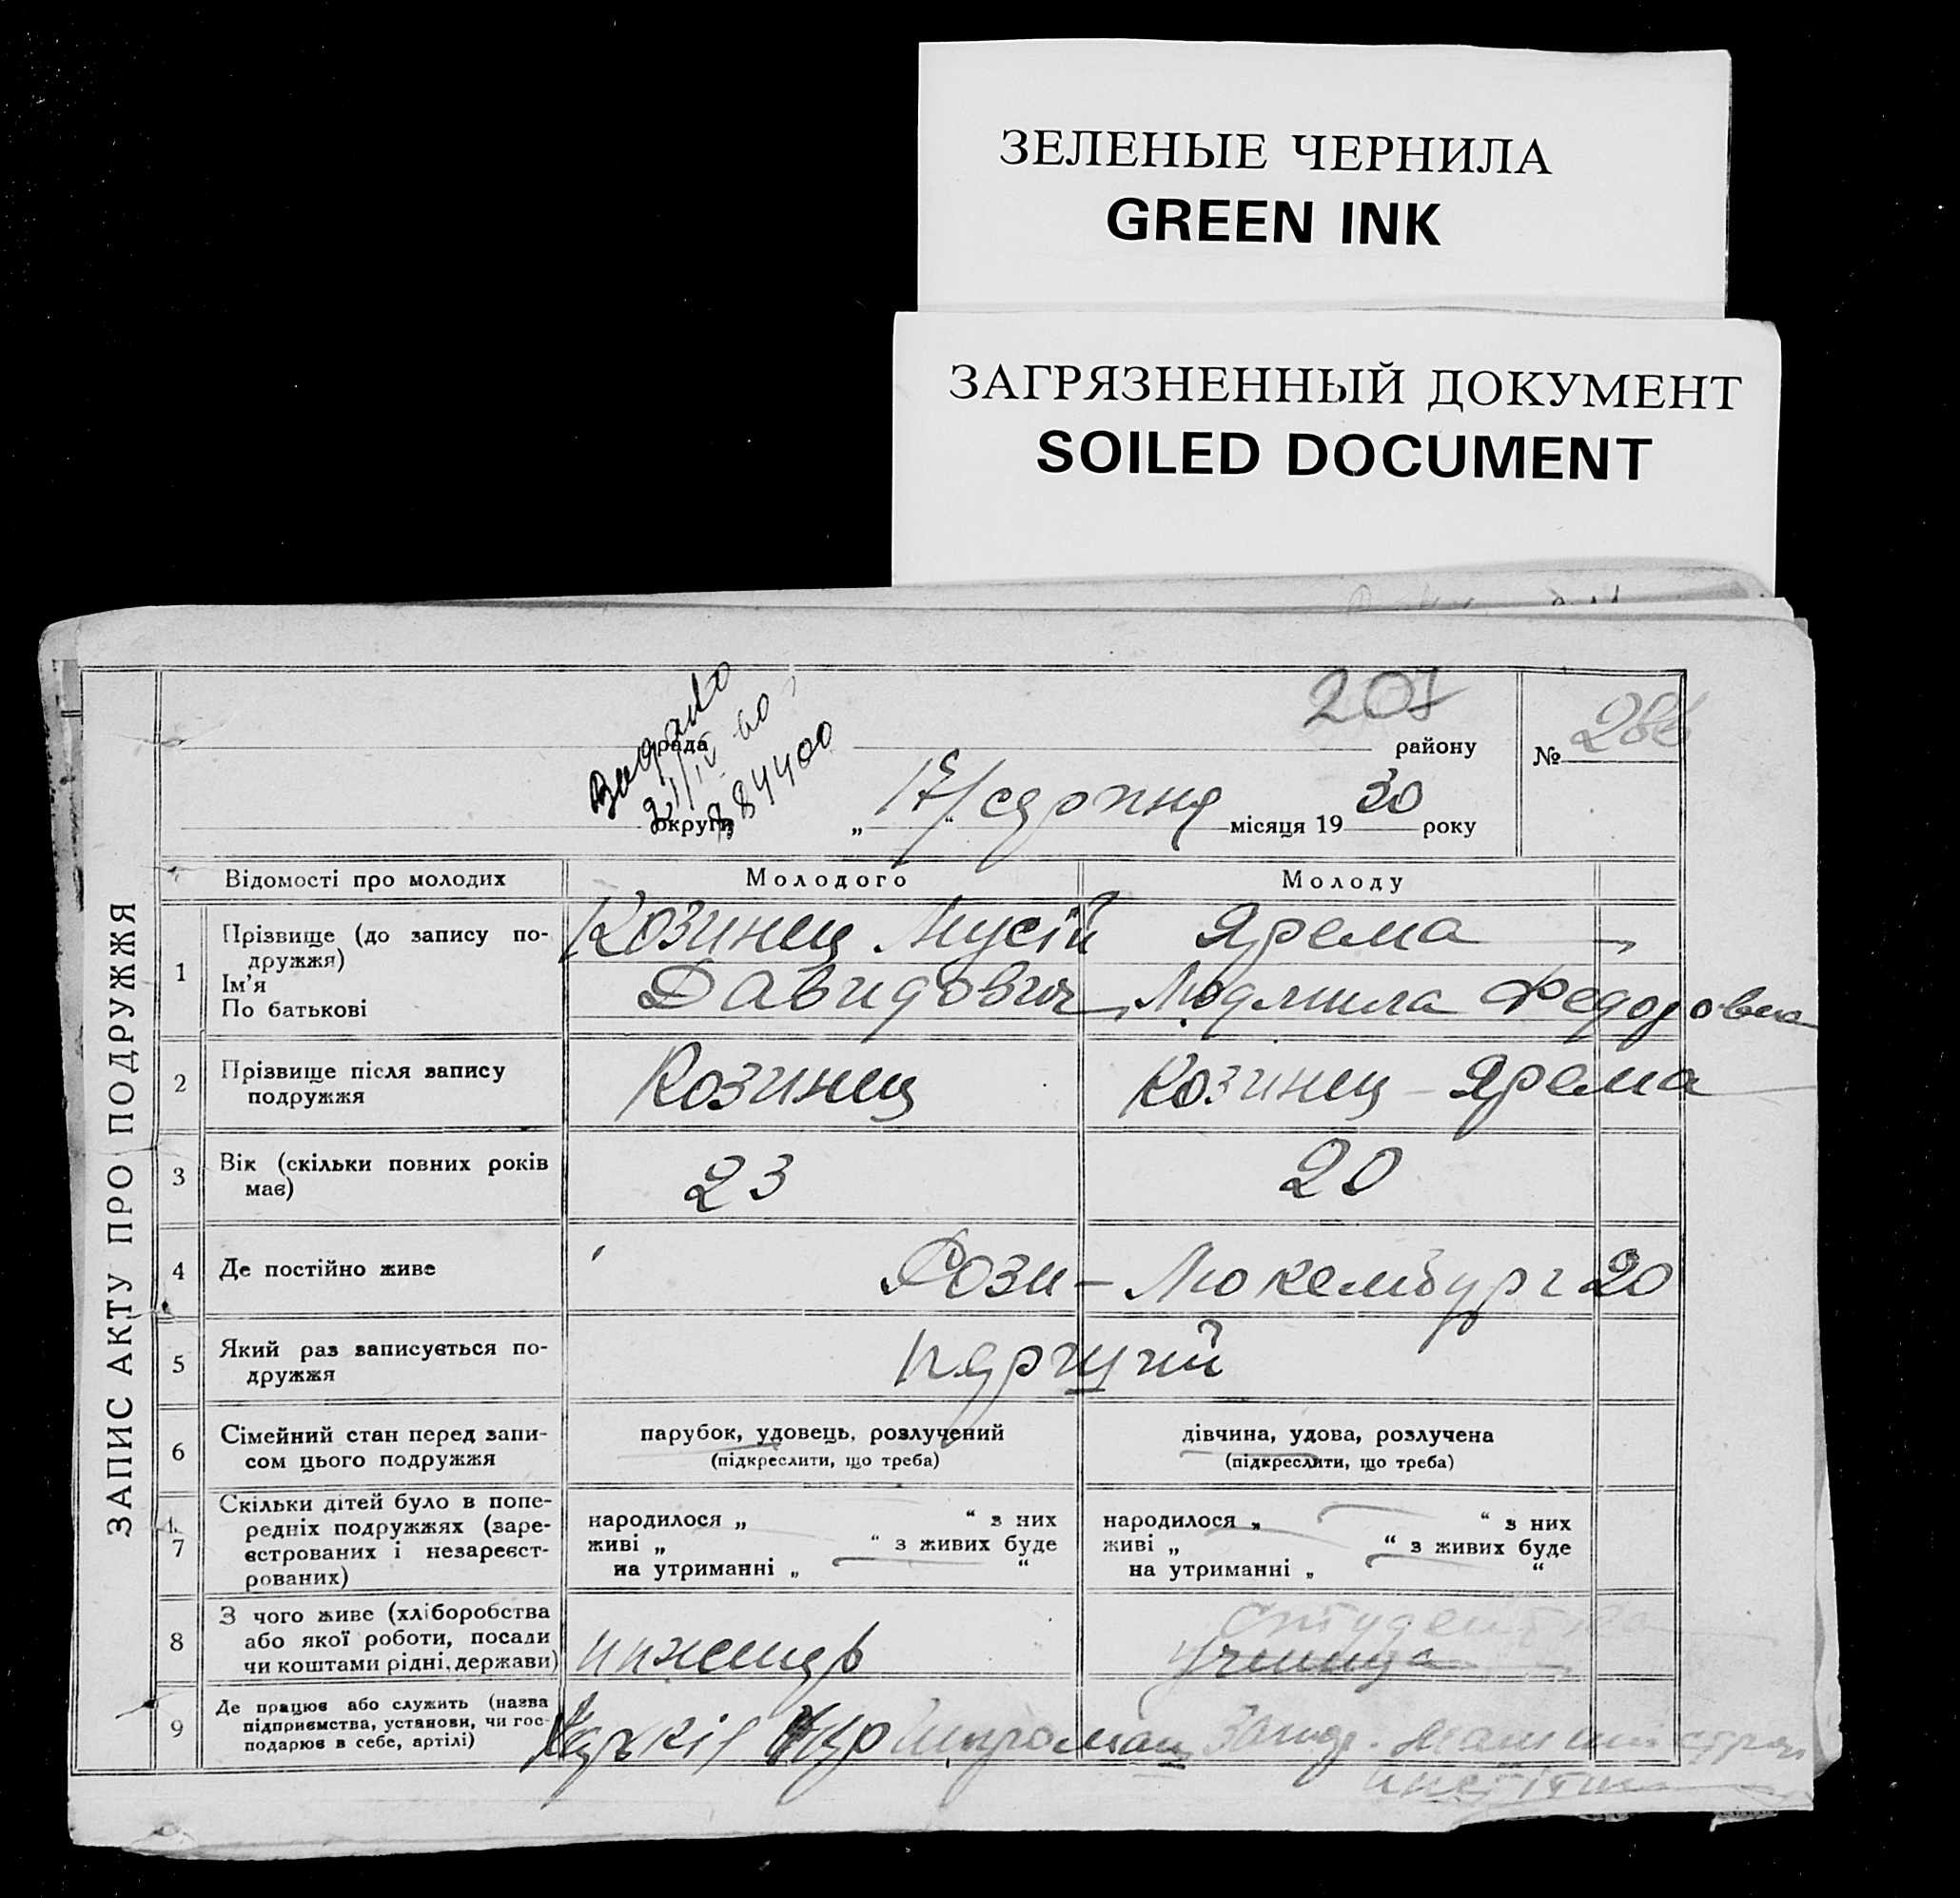 ЗЕЛЕНЫЕ ЧЕРНИЛА
GREEN INK
ЗАГРЯЗНЕННЫЙ ДОКУМЕНТ
SOILED DOCUMENT
ЗАПИС АКТУ ПРО ПОДРУЖЖЯ
рада
207 району
№ 286
округи
„17“ серпня місяця 1930 року
Відомості про молодих Молодого Молоду
1 Прізвище (до запису по-
дружжя)
Ім'я
По батькові
Козинец Мусій
Давидович
Ярема
Людмила Федоровна
2 Прізвище після запису
подружжя
Козинец
Козинец - Ярема
3 Вік (скільки повних років
має)
23
20
4 Де постійно живе
Рози - Люкембург 20
5 Який раз записується по-
дружжя
перший
6 Сімейний стан перед запи-
сом цього подружжя
парубок, удовець, розлучений
(підкреслити, що треба)
дівчина, удова, розлучена
(підкреслити, що треба)
7 Скільки дітей було в попе-
редніх подружжях (заре-
єстрованих і незареєст-
рованих)
народилося „ “ з них
живі „ “ з живих буде
на утриманні „ “
народилося „ “ з них
живі „ “ з живих буде
на утриманні „ “
8 З чого живе (хліборобства
або якої роботи, посади
чи коштами рідні, держави)
инженер
студентка
учениця
9 Де працює або служить (назва
підприємства, установи, чи гос-
подарює в себе, артілі)
Харків